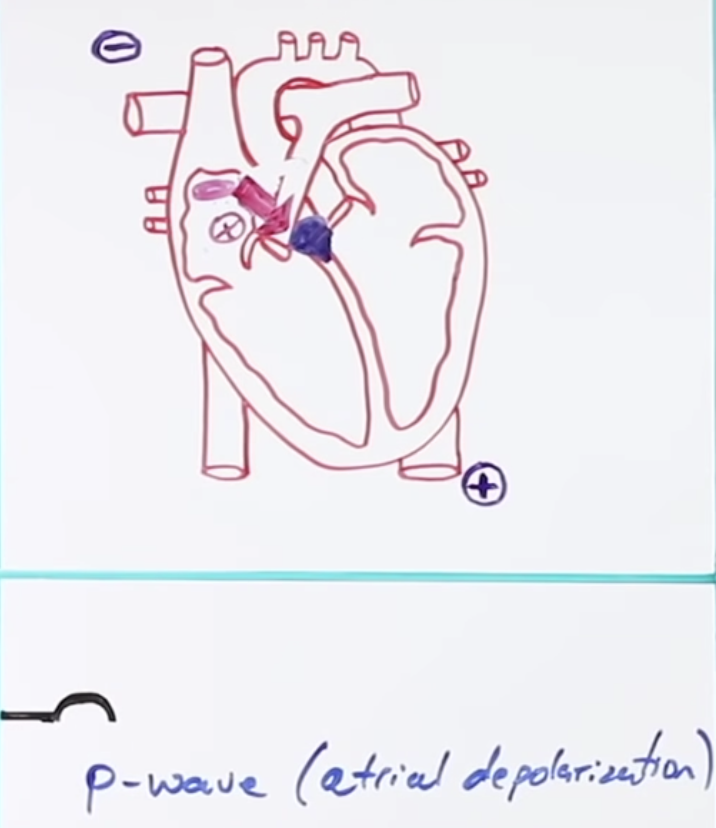 −
+
+
P-wave (atrial depolarization)